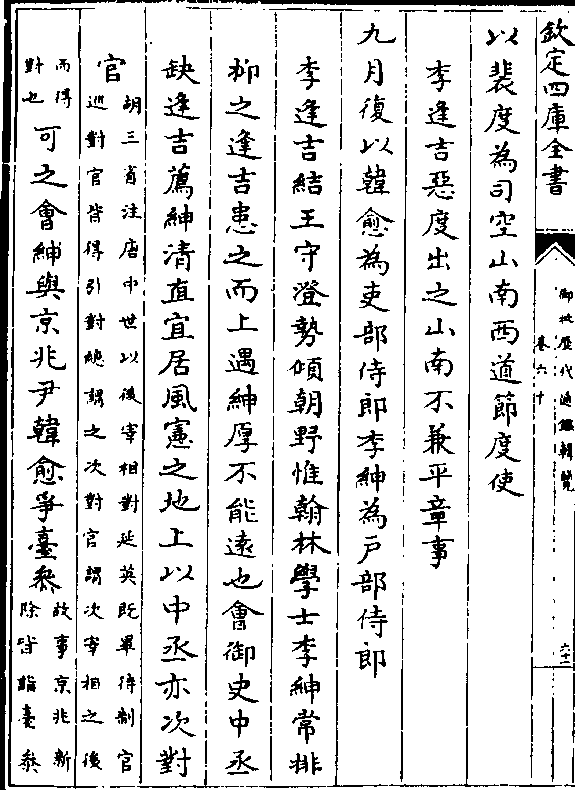 欽定四庫全書
御批歷代通鑑輯覽
卷六十
以裴度為司空山南西道節度使
李逢吉惡度出之山南不兼平章事
九月復以韓愈為吏部侍郎李紳為戶部侍郎
李逢吉結王守澄勢傾朝野惟翰林學士李紳常排
抑之逢吉患之而上遇紳厚不能遠也會御史中丞
缺逢吉薦紳清直宜居風憲之地上以中丞亦次對
官
胡三省注唐中世以後宰相對延英既畢待制官
巡對官皆得引對總謂之次對官謂次宰相之後
而得
對也
可之會紳與京兆尹韓愈爭臺參
故事京兆新
除皆詣臺參